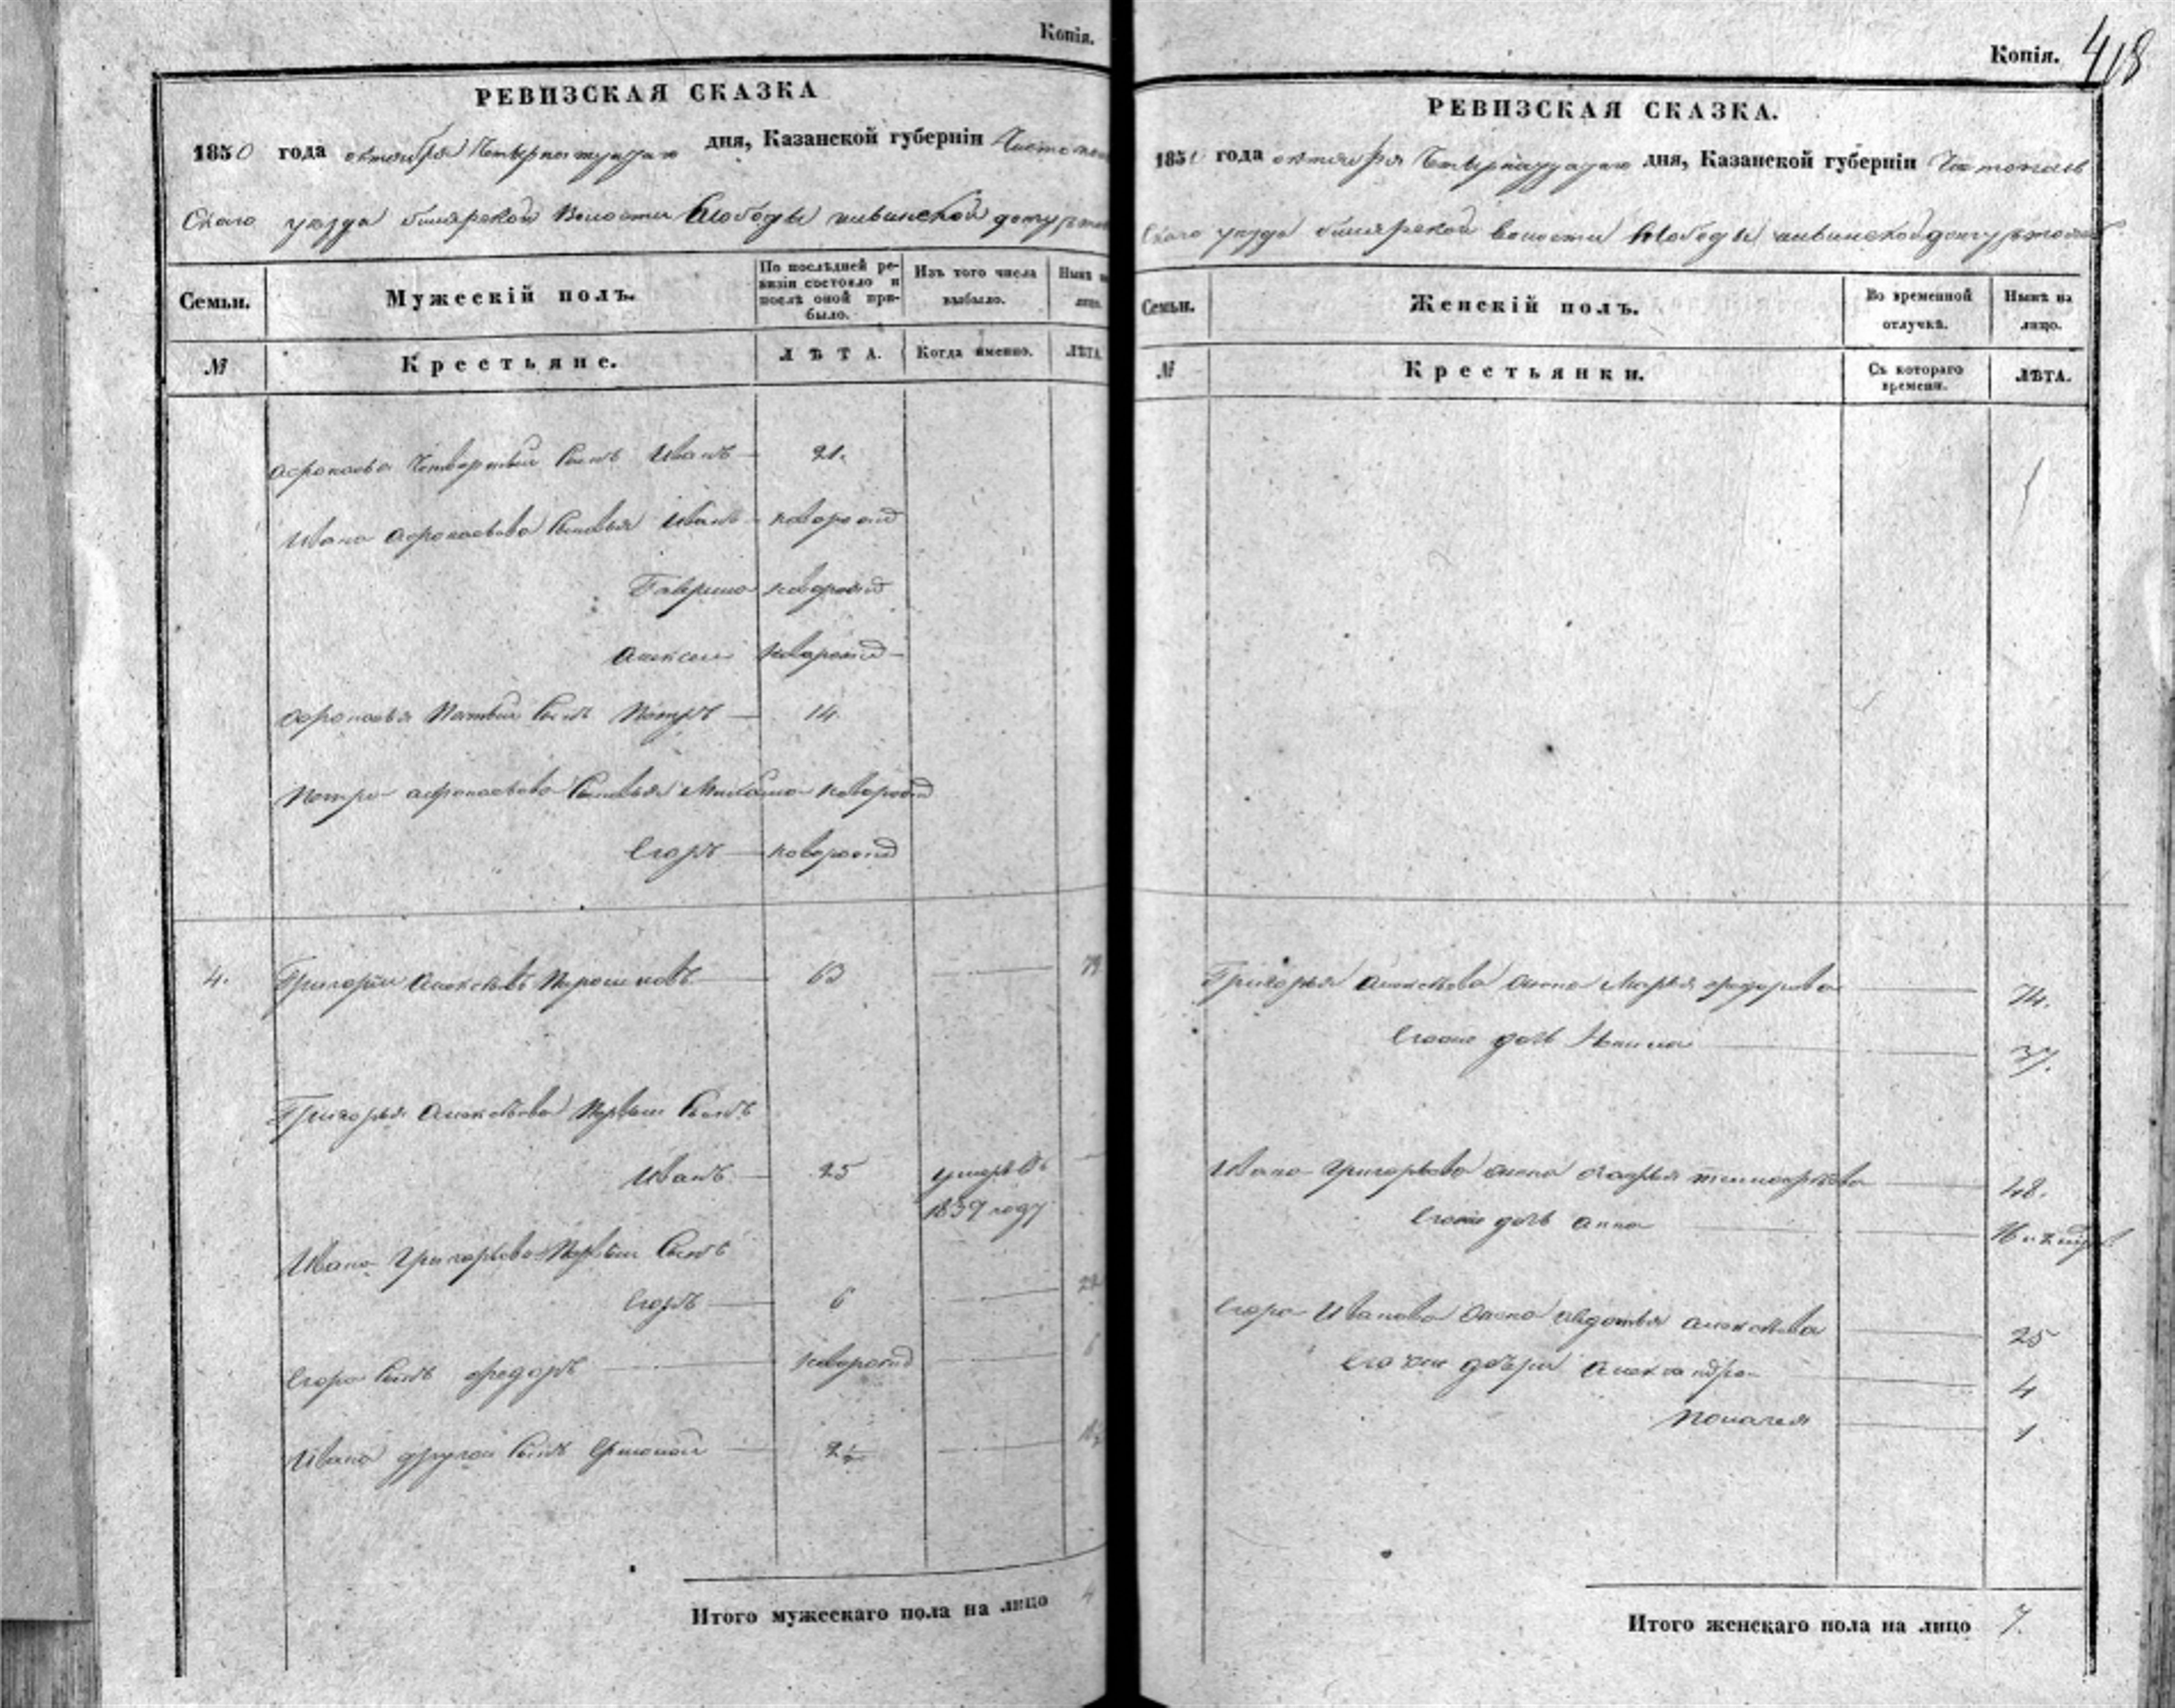 Копія.
РЕВИЗСКАЯ СКАЗКА
1850 года октября Четырнатцатаго дня, Казанской губерніи Чистополь
Скаго уезда билярской Волости Слободы
Семьи.
Мужескій полъ.
По послѣдней ре-
визіи состояло и
послѣ оной при-
было.
Изъ того числа
выбыло.
Нынѣ на
лицо.
№
Крестьяне.
ЛѢТА.
Когда именно.
ЛѢТА.
Четвертый Сынъ Иванъ 21.
Ивана Сыновья Иванъ новорожд
Гаврило новорожд
Алексей новорожд
Пятый Сынъ Петръ 14.
Петра Сыновья Михайло новорожд
Егоръ новорожд
4. Григорий Алексѣевъ 63 79
Григорья Алексѣева Первый Сынъ
Иванъ 25 умеръ Въ
1837 году
Ивана Григорьева Первый Сынъ
Егоръ 6 22
Егора Сынъ Федоръ новорожд 6
Ивана другой Сынъ 2½
Итого мужескаго пола на лицо 4
Копія. 418
РЕВИЗСКАЯ СКАЗКА.
1850 года октября Четырнаццатаго дня, Казанской губерніи Чистополь
Скаго уезда билярской волости Слободы
Семьи.
Женскій полъ.
Во временной
отлучкѣ.
Нынѣ на
лицо.
№
Крестьянки.
Съ котораго
времени.
ЛѢТА.
Григорья Алексѣева жена Марья Федорова 74.
Егоже дочь 37.
Ивана Григорьева жена 48.
Егоже дочь Анна
Егора Иванова жена Авдотья Алексѣева 25
Егоже дочери Александра 4
Пелагея 1.
Итого женскаго пола на лицо 7.